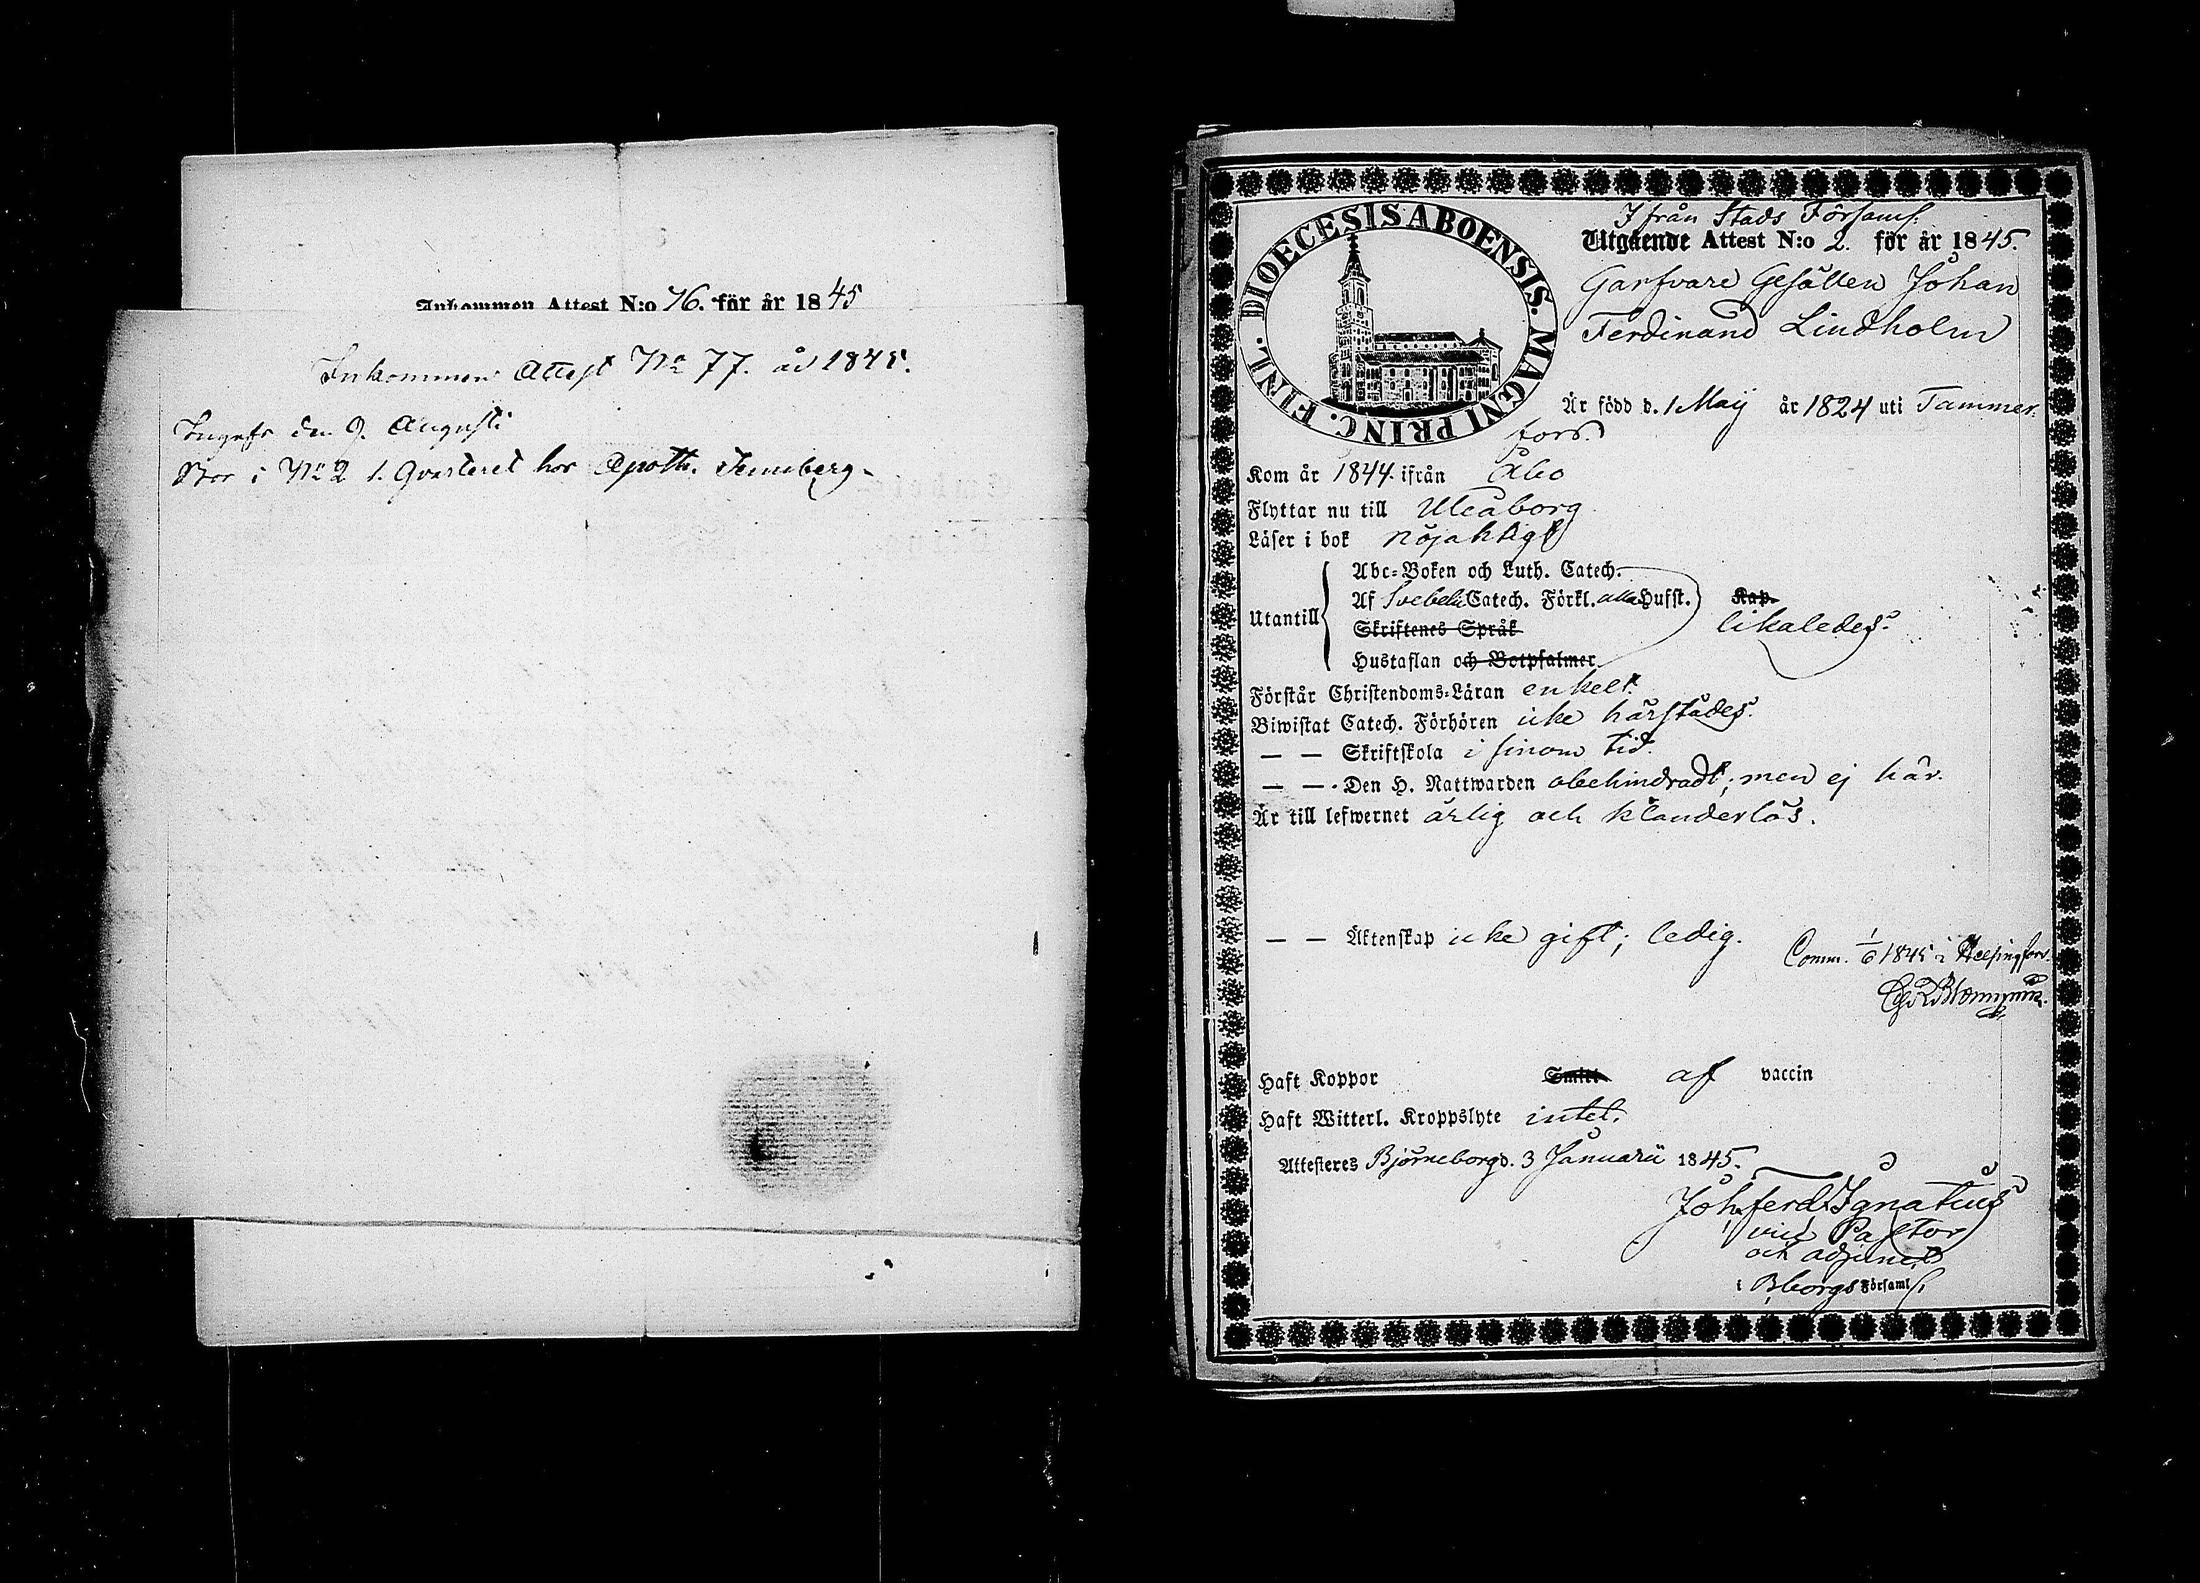 Inkommen Attest N:o 76. för år 1845
Inkommen Attest No 77. år 1845.
den 9. Augusti
Bor i No 2 1. Qvarteret hos Apoth.
DIOECESIS ABOENSIS. MAGNI PRINC. FINL.
Ifrån Stads Församl.
Utgående Attest N:o 2. för år 1845.
Garfvare Gesällen Johan
Ferdinand Lindholm
Är född d. 1 Maij år 1824 uti Tammer-
fors.
Kom år 1844. ifrån Åbo
Flyttar nu till Uleåborg
Läser i bok nöjaktigt
Utantill
Abc-Boken och Luth. Catech.
Af Svebelii Catech. Förkl. alla Hufst. Kap.
Skriftenes Språk likaledes.
Hustaflan och Botpsalmer
Förstår Christendoms-Läran enkelt.
Biwistat Catech. Förhören icke härstädes.
— — Skriftskola i sinom tid.
— — Den H. Nattwarden obehindradt; men ej här.
Är till lefwernet ärlig och klanderlös.
— — Äktenskap icke gift; ledig.
Comm. 1/6 1845 i Helsingfors.
Haft Koppor Smitt af vaccin
Haft Witterl. Kroppslyte intet.
Attesteras Björneborg d. 3 Januarii 1845.
Joh. Ferd. Ignatius
Pastor
och adjunct
i Bborgs Församl.